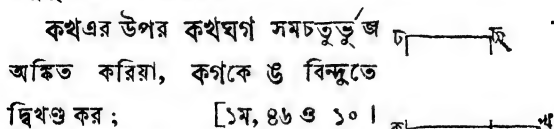 কখএর উপর কখঘগ সমচতুর্ভুজ
অঙ্কিত করিয়া, কগকে ঙ বিন্দুতে
দ্বিখণ্ড কর ; [১ম, ৪৬ ও ১০।
চ
ক
খ